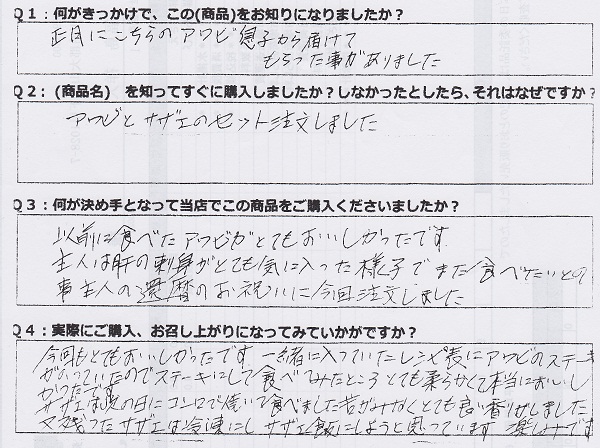 Q1：何がきっかけで、この(商品)をお知りになりましたか？
正月にこちらのアワビ息子から届けて
もらった事がありました
Q2：(商品名)　を知ってすぐに購入しましたか？しなかったとしたら、それはなぜですか？
アワビとサザエのセット注文しました
Q3：何が決め手となって当店でこの商品をご購入くださいましたか？
以前に食べたアワビがとてもおいしかったです
主人は肝の刺身がとても気に入った様子でまた食べたいとの
事主人の還暦のお祝いに今回注文しました
Q4：実際にご購入、お召し上がりになってみていかがですか？
今回もとてもおいしかったです 一緒に入っていたレシピ表にアワビのステーキ
がのっていたのでステーキにして食べてみたところとても柔らかくて本当においし
かったです
サザエは次の日にコンロで焼いて食べました 香りがしました
又残ったサザエは冷凍にしサザエ飯にしようと思っています 楽しみです